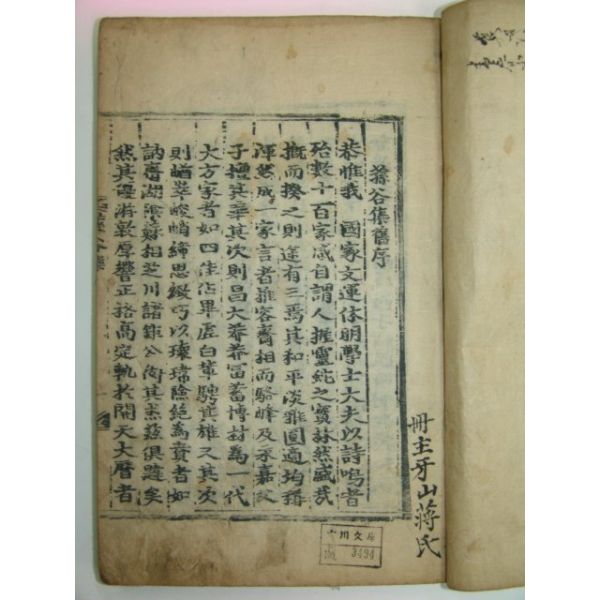 蓀谷集舊序
恭惟我 國家文運休明學士大夫以詩鳴者
殆數十百家咸自謂人握靈蛇之寶林然盛哉
概而揆之則途有三焉其和平淡雅圓適均稱
渾然成一家言者推容齋相而駱峰及永嘉父
子擅其華其次則昌大莽莽富蓄博材為一代
大方家者如四佳佔畢虛白輩騁其雄又其次
則崷崒峻峭締思緻巧以瓌瑋險絕為貴者如
訥齋湖陰蘇相芝川諸鉅公
然其優游敦厚響正格高定軌於開天大曆者
冊主牙山蔣氏
川文庫
3494